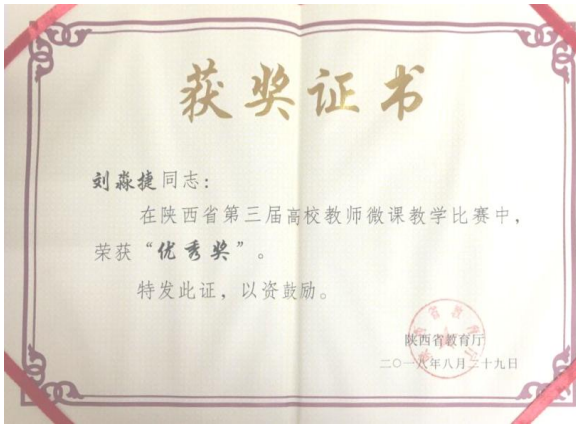 获奖证书
刘淼捷同志：
在陕西省第三届高校教师微课教学比赛中，
荣获“优秀奖”。
特发此证，以资鼓励。
陕西省教育厅
二〇一八年八月二十九日
陕西省教育厅